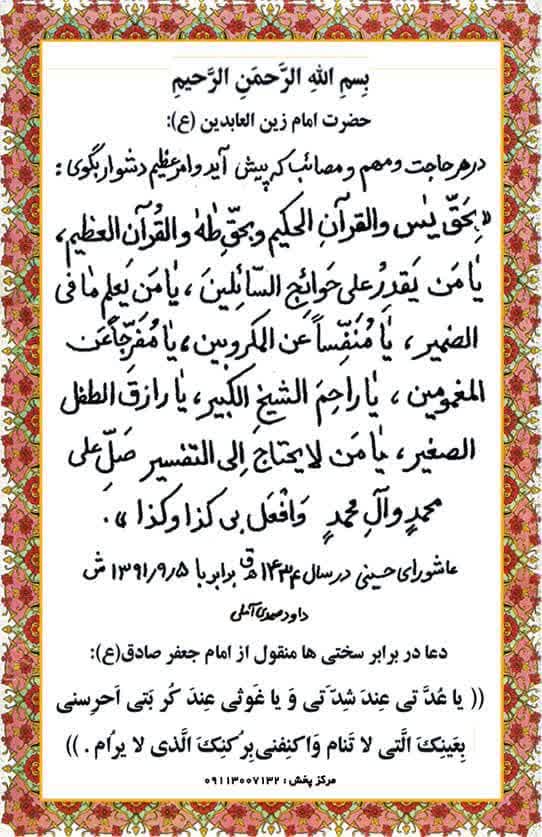 بِسمِ اللهِ الرَّحمَنِ الرَّحیمِ
حضرت امام زین العابدین (ع):
در هر حاجت و مهم و مصائب که پیش آید و امر عظیم دشوار بگوی :
«بِحَقِّ یٰس والقرآنِ الحکیم وبحقِّ طٰهٰ والقُرآن العظیم،
یٰا مَن یَقدِرُ علی حَوائجِ السّائلینَ ، یٰا مَن یَعلم مٰا فی
الضمیر ، یٰا مُنَفِّساً عن المکروبین ، یٰا مُفَرّجاً عَن
المغمومین ، یٰا راحِمَ الشیخِ الکبیر، یٰا رازقَ الطفل
الصغیر، یٰا مَن لا یحتاج اِلی التفسیر صَلِّ علی
محمدٍ و آلِ محمدٍ وَافعَل بی کذا وکذا » .
عاشورای حسینی در سال ۱۴۳۴ ه‍ ق برابر با ۱۳۹۱/۹/۵ ش
داود صمدی آملی
دعا در برابر سختی ها منقول از امام جعفر صادق(ع):
(( یا عُدَّ تی عِندَ شِدَّ تی وَ یا غَوثی عِندَ کُر بَتی اَحرِسنی
بِعَینِکَ الَّتی لا تَنام وَاکنِفنی بِرُکنِکَ الَّذی لا یرُام . ))
مرکز پخش : ۰۹۱۱۳۰۰۷۱۳۲